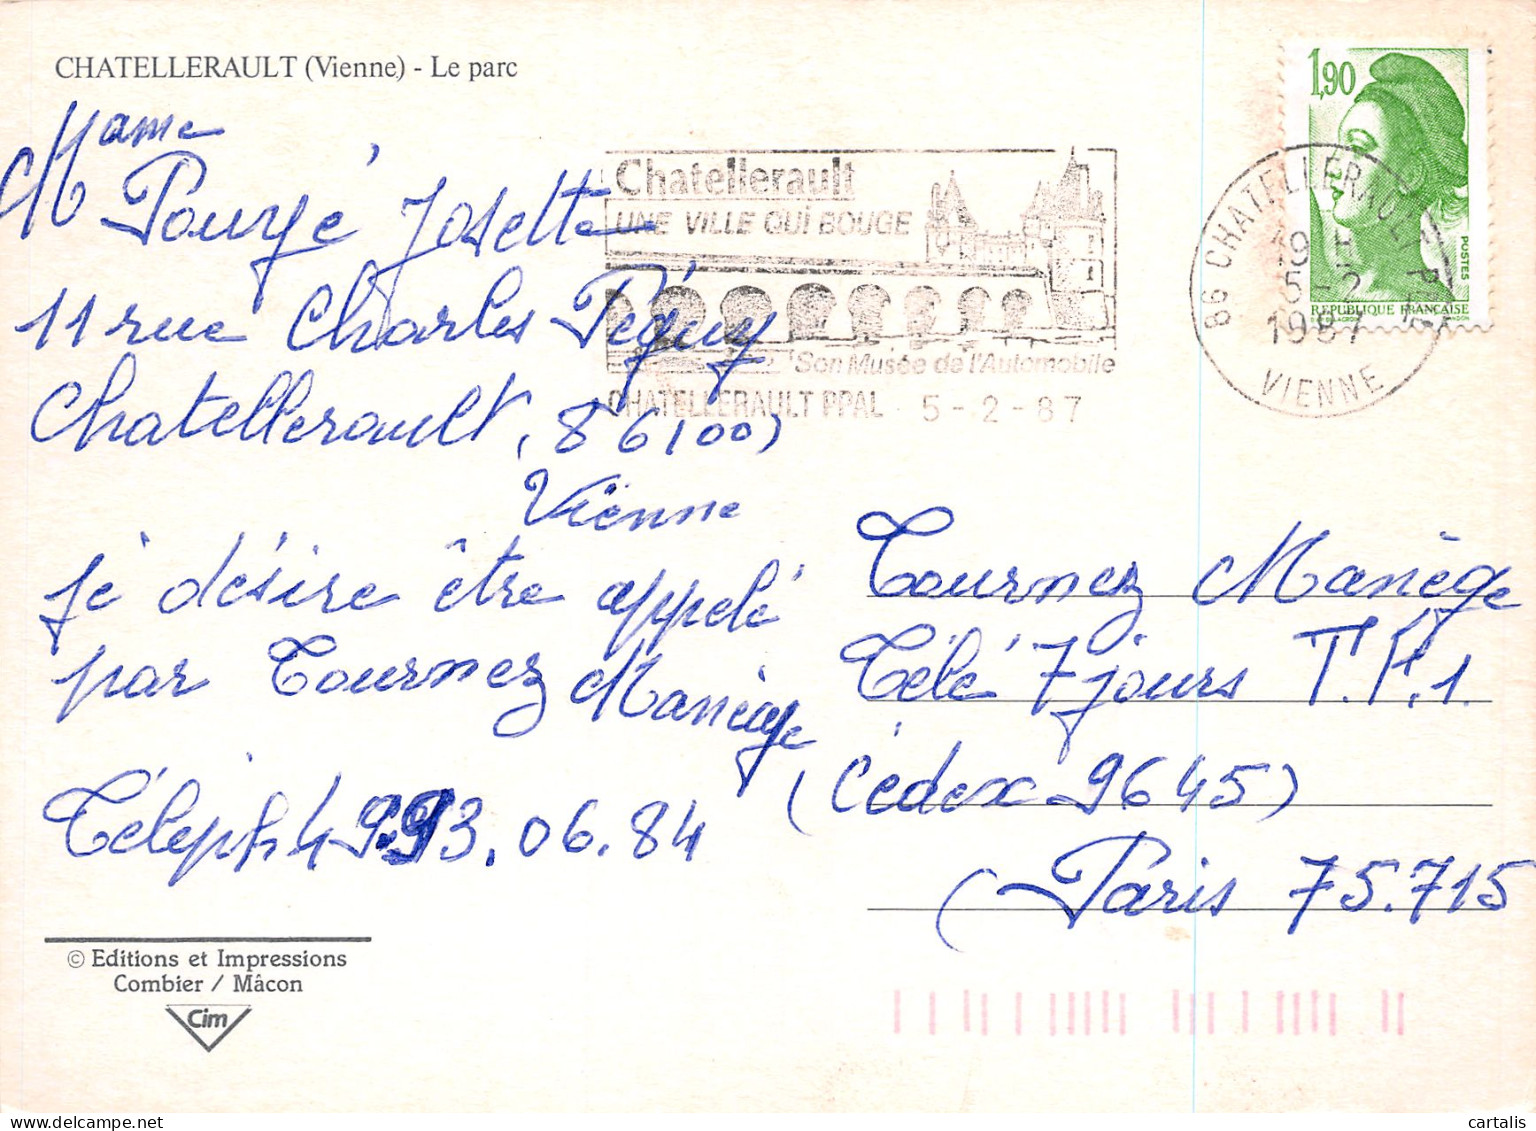 CHATELLERAULT (Vienne) - Le parc
Mame
Pouryé Josette
11 rue Charles Péguy
Chatellerault, 86100,
Vienne
je désire être appelé
par Tournez Manège
Téléph 49.93.06.84
© Editions et Impressions
Combier / Mâcon
Cim
Chatellerault
UNE VILLE QUI BOUGE
Son Musée de l'Automobile
CHATELLERAULT PPAL 5 - 2 - 87
1,90
POSTES
REPUBLIQUE FRANÇAISE
86 CHATELLERAULT PPAL
19 H
5 - 2
1987
VIENNE
Tournez Manège
Télé 7 jours T.F.1.
(Cédex 9645)
(Paris 75.715
cartalis.delcampe.net